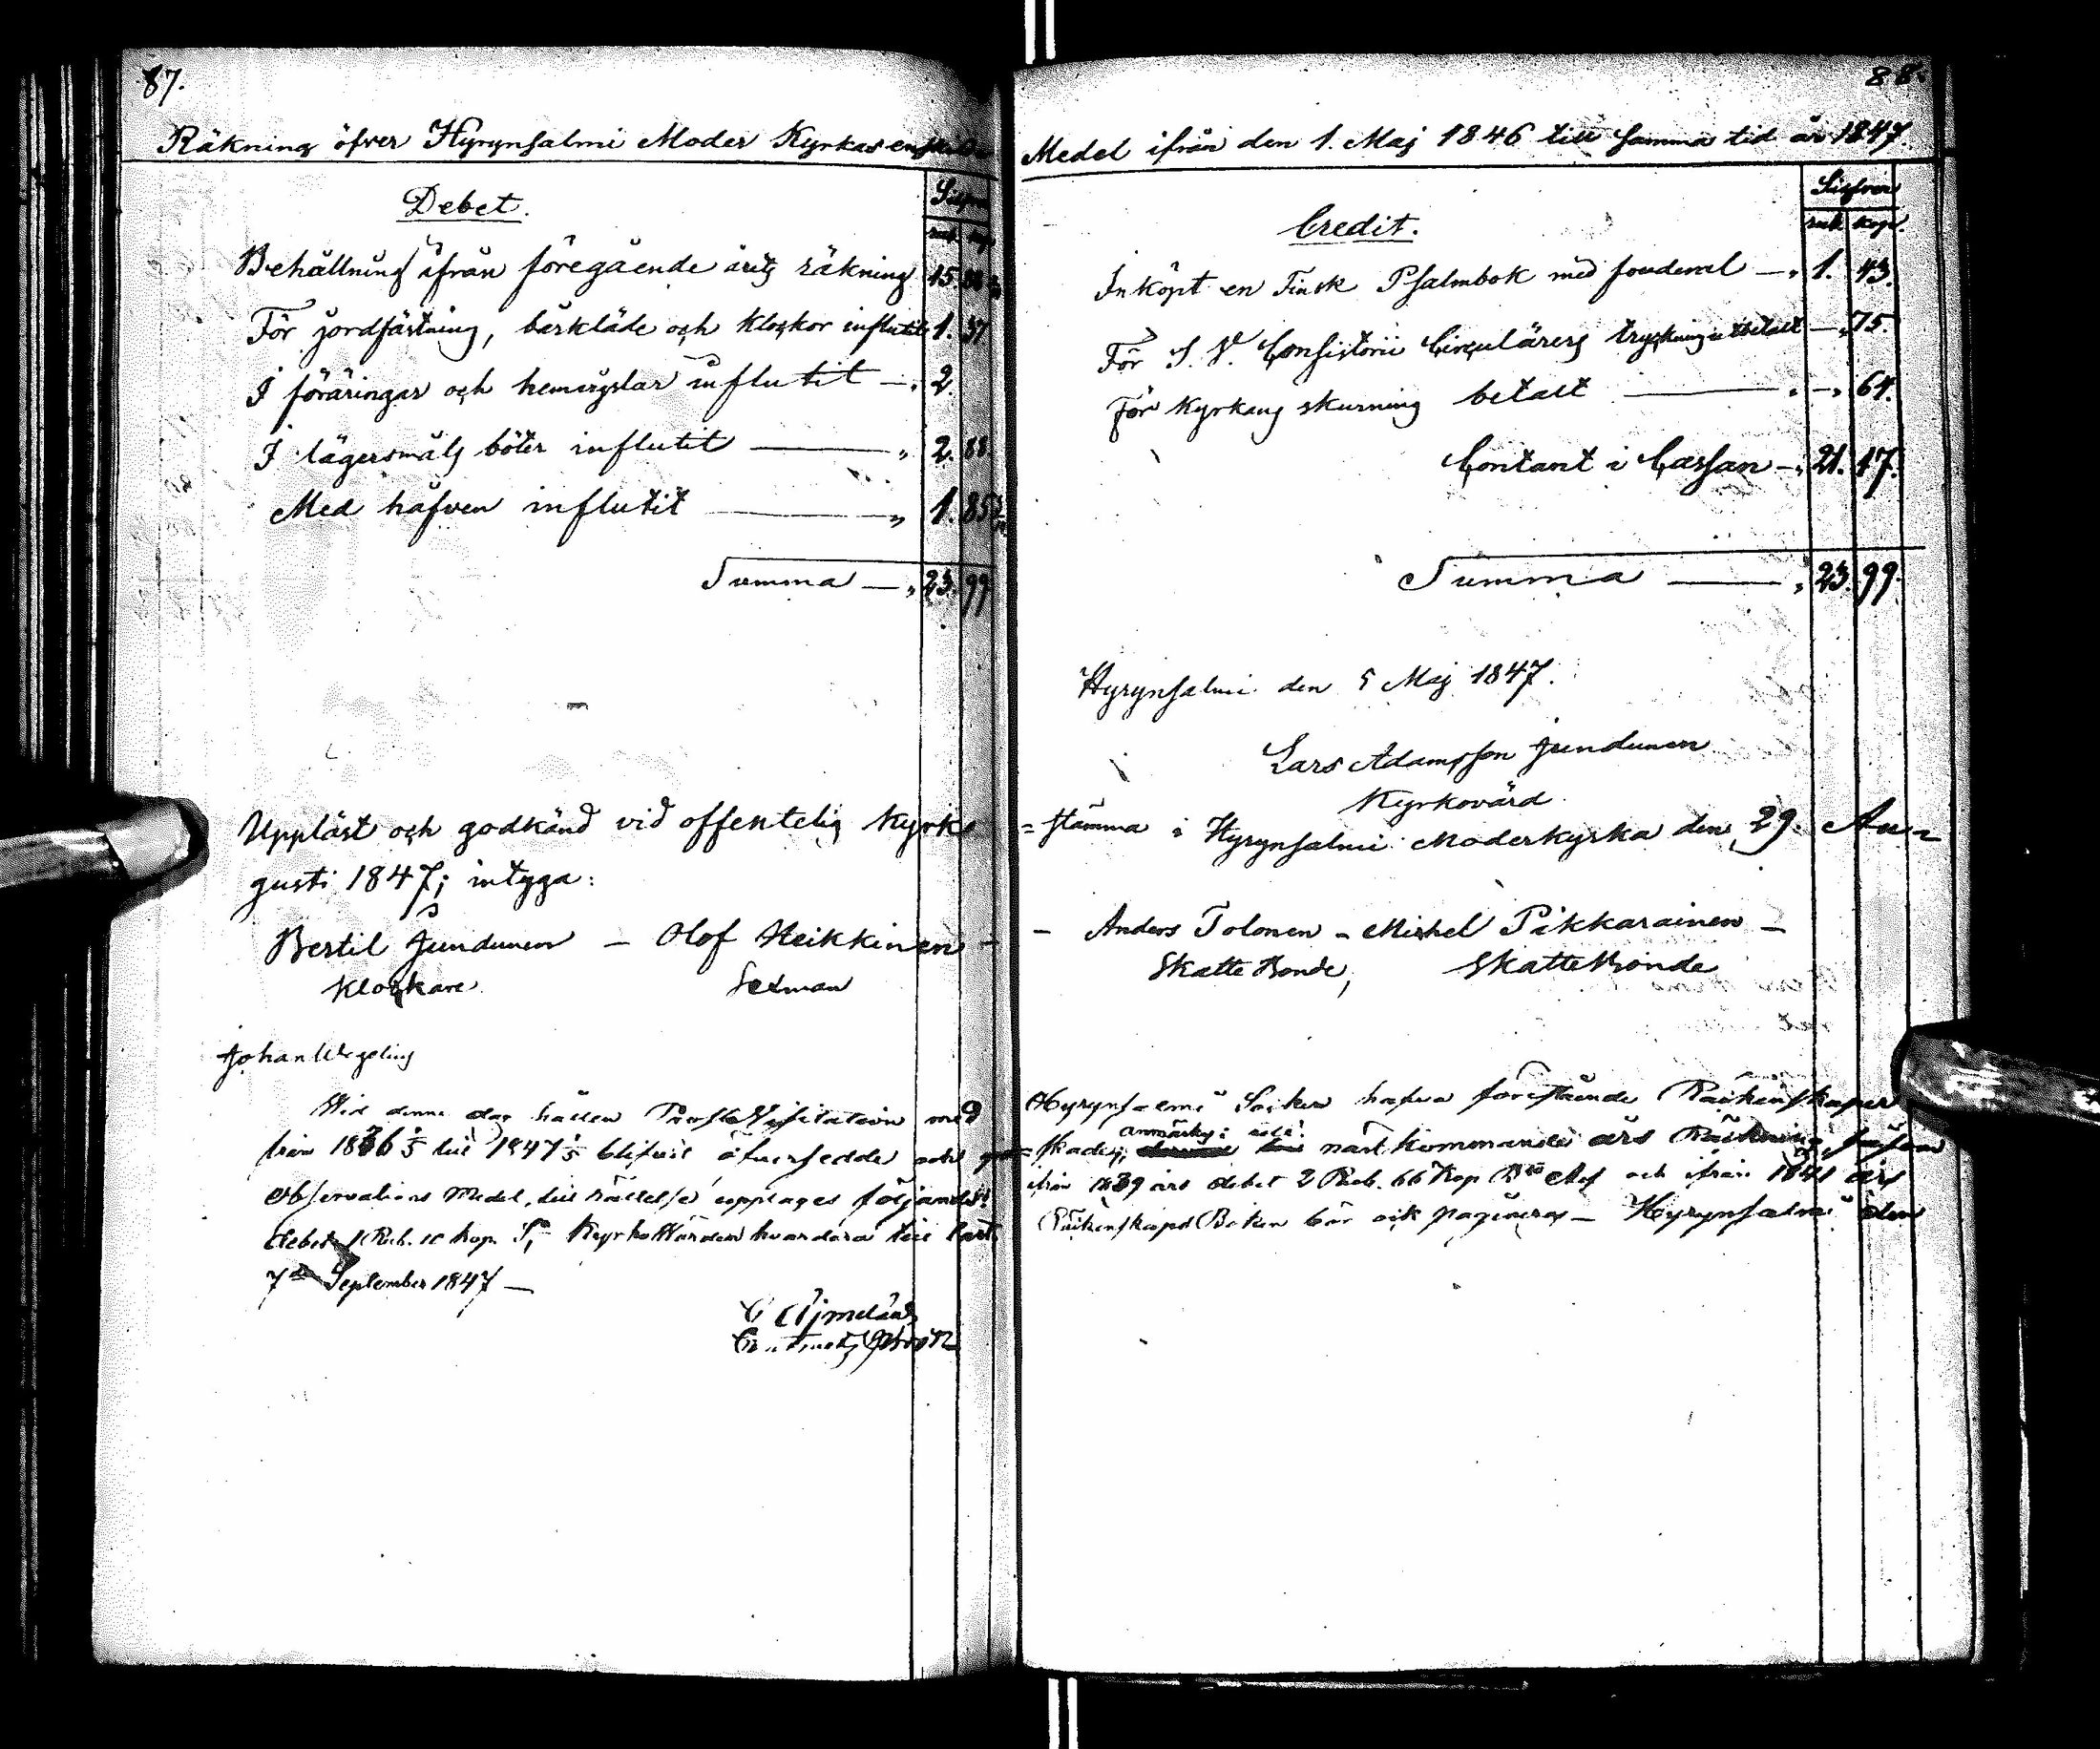 87.
Räkning öfver Hyrynsalmi Moder Kyrkas enskilda
Debet.
Silfver
rub. kop.
Behållning ifrån föregående årets räkning 15.
För jordfästning, bårkläde och klockor influtit 1. 37
I föräringar och hemuyslar influtit —„ 2.
I lägersmåls böter influtit —„ 2. 88.
Med håfven influtit —„ 1. 85
Summa —„ 23. 99
Uppläst och godkänd vid offentelig Kyrko
gusti 1847; intyga:
Bertil Jundunen — Olof Heikkinen —
Klockare Sexman
Johan Wegelius
Vid denna dag hållen Prosts Visitation med
från 1836 1/5 till 1847 1/5 blifvit öfversedde och
Observations Medel, till rättelse upptages följande:
debet 1 Rub. 10 kop. S, Kyrko Värden hvardera till last.
7de September 1847 —
88.
Medel ifrån den 1. Maj 1846 till samma tid år 1847.
Credit.
Silfver
rub. kop.
Inköpt en Finsk Psalmbok med fouderal —„ 1. 43.
För S. V. Consistorii Circulärers tryckning utbetalt —„ 75.
För Kyrkans skurning betalt —„ —„ 64.
Contant i Cassan —„ 21. 17.
Summa —„ 23. 99.
Hyrynsalmi den 5 Maj 1847.
Lars Adamsson Jundunen
Kyrkovärd.
= stämma i Hyrynsalmi Moderkyrka den 29. Au=
— Anders Tolonen — Michel Pikkarainen —
Skatte Bonde, Skatte Bonde
Hyrynsalmi Socken hafva förestående Räkenskaper
anmärkn: vid:
skade; näst kommande års Räkning,
ifrån 1839 års debet 2 Rub. 66 Kop Bco Ass och ifrån 1841 års
Räkenskaps Boken bör ock pagineras — Hyrynsalmi den